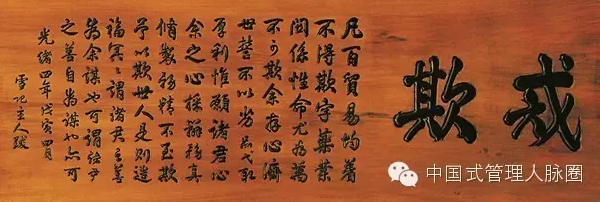 戒欺
凡百貿易均着
不得欺字藥業
関係性命尤為萬
不可欺余存心濟
世誓不以劣品弋取
厚利惟願諸君心
余之心採辦務真
修製務精不至欺
予以欺世人是則造
福冥冥謂諸君之善
為余謀也可謂諸君
之善自為謀也亦可
光緒四年戊寅四月
雪記主人跋
中国式管理人脉圈